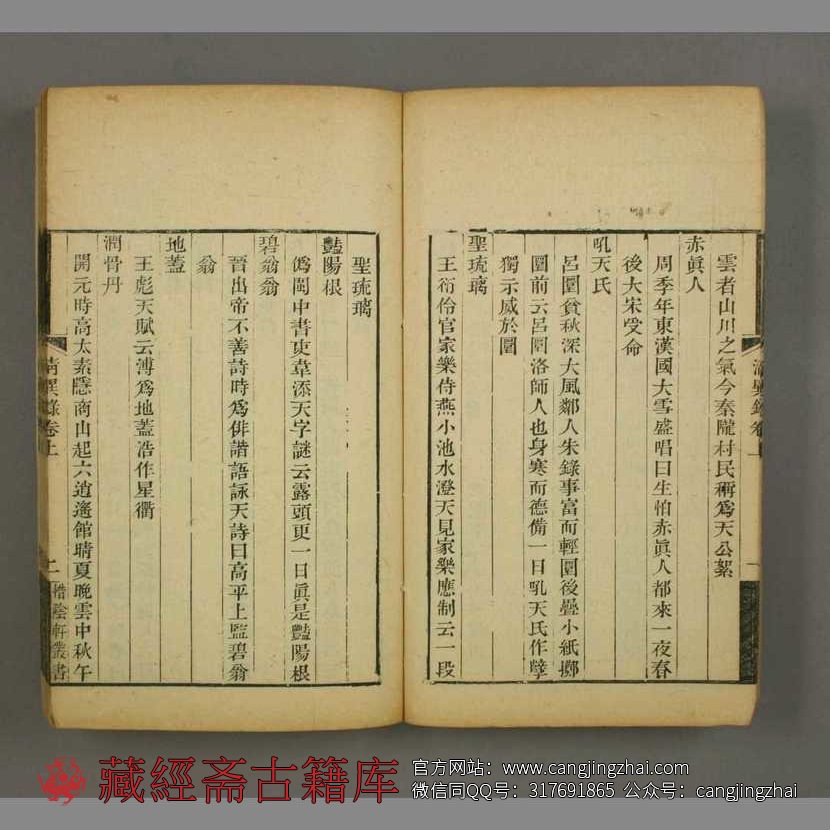 雲者山川之氣今秦隴村民稱爲天公絮
赤眞人
周季年東漢國大雪盛唱曰生怕赤眞人都來一夜春
後大宋受命
吼天氏
呂圜貧秋深大風鄰人朱錄事富而輕圜後疊小紙擲
圜前云呂圜洛師人也身寒而德備一日吼天氏作孽
獨示威於圜
聖琉璃
王衍伶官家樂侍燕小池水澄天見家樂應制云一段
清異錄卷上
一
聖琉璃
豔陽根
僞閩中書吏韋添天字謎云露頭更一日眞是豔陽根
碧翁翁
晉出帝不善詩時爲俳諧語詠天詩曰高平上監碧翁
翁
地葢
王彪天賦云溥爲地葢浩作星衢
潤骨丹
開元時高太素隱商山起六逍遙館晴夏晚雲中秋午
清異錄卷上
二
惜陰軒叢書
藏經斋古籍库
官方网站：www.cangjingzhai.com
微信同QQ号：317691865 公众号：cangjingzhai